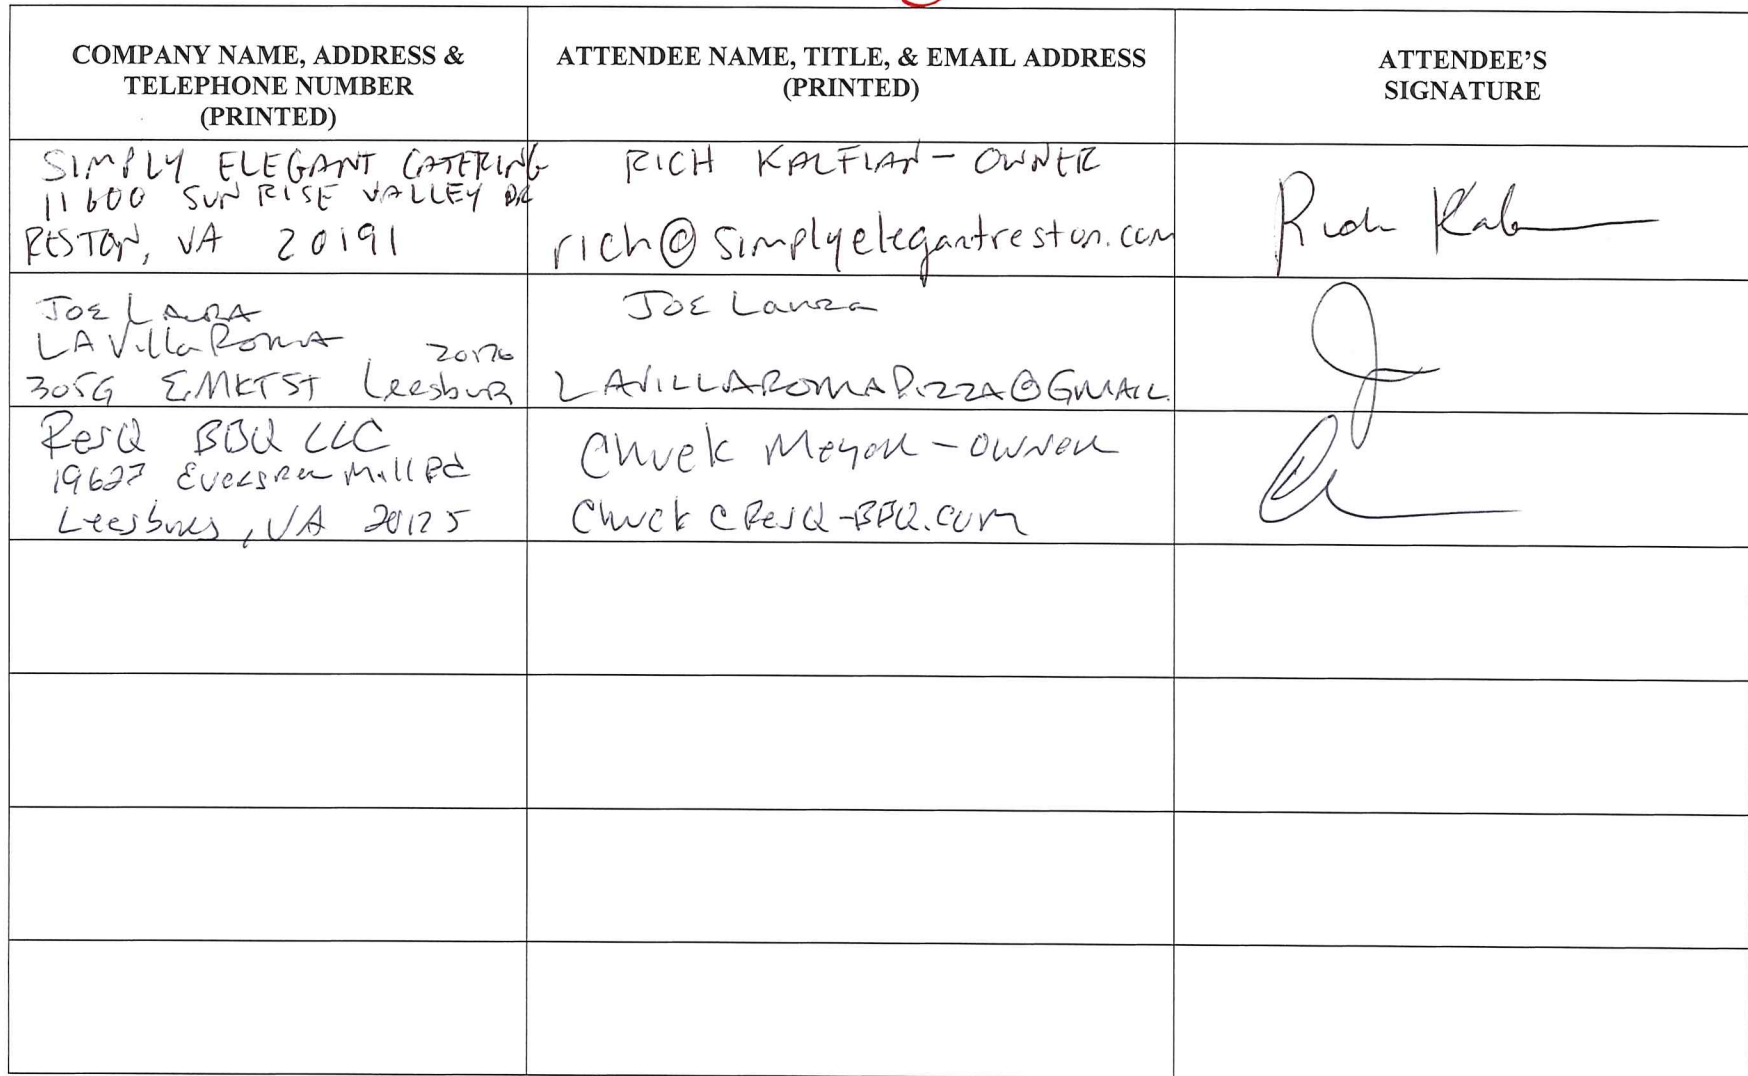 COMPANY NAME, ADDRESS &
TELEPHONE NUMBER
(PRINTED)
ATTENDEE NAME, TITLE, & EMAIL ADDRESS
(PRINTED)
ATTENDEE'S
SIGNATURE
SIMPLY ELEGANT CATERING
11600 SUNRISE VALLEY DR
RESTON, VA 20191
RICH KALFIAN - OWNER
rich@simplyelegantreston.com
JOE
LA Villa Roma
20176
305G E. MKT ST Leesbur
JOE Lanza
LAVILLAROMAPIZZA@GMAIL.
ResQ BBQ LLC
Evergreen Mill Rd
Leesburg, VA
Chuck - owner
Chuck@ResQ-BBQ.com